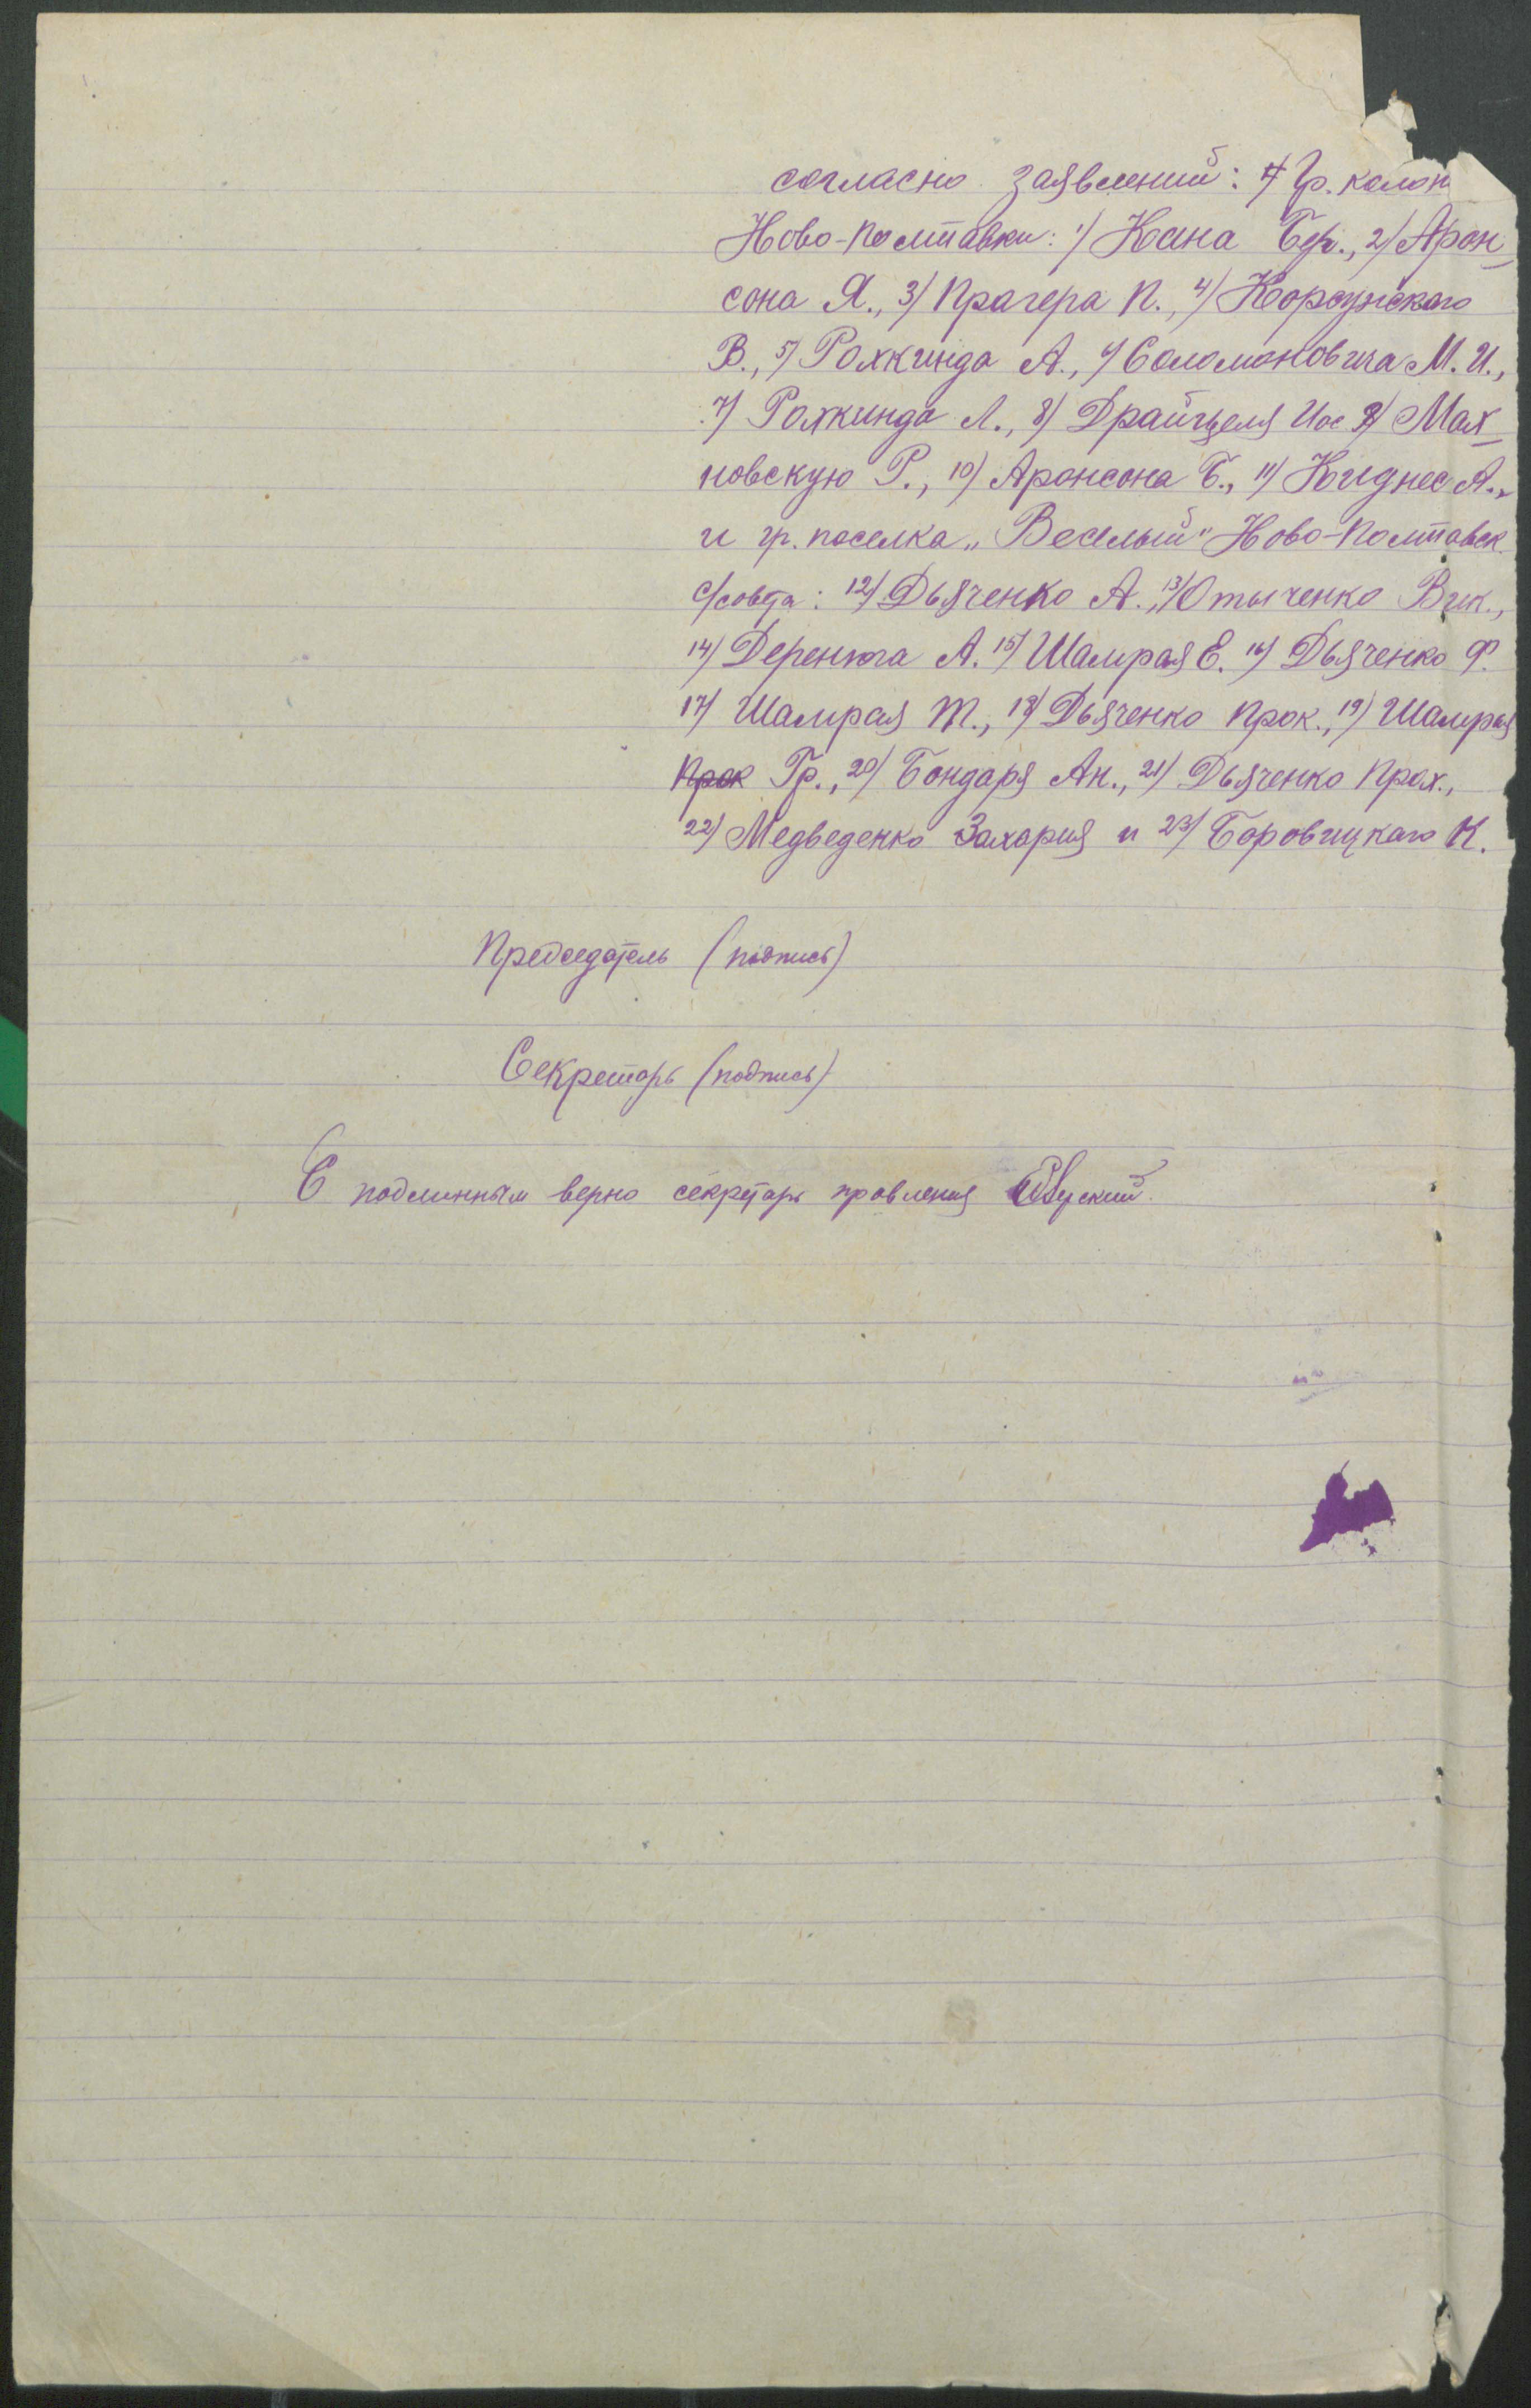 согласно заявлений: Гр. колон
Ново-Полтавки: 1) Кана Бер., 2) Арон-
сона Я., 3) Прагера П., 4) Корсунского
В., 5) Рохкинда А., 6) Соломоновича М. И.,
7) Рохкинда Л., 8) Драйцеля Иос 9) Мах-
новскую Р., 10) Аронсона Б., 11) Киднес А.,
и гр. поселка „Веселый" Ново-Полтавск.
с/совета: 12) Дьяченко А., 13) Отыченко Вик.,
14) Деренюга А. 15) Шамрая Е. 16) Дьяченко Ф.
17) Шамрая Т., 18) Дьяченко Прок., 19) Шамрая
Прок Гр., 20) Бондаря Ан., 21) Дьяченко Прох.,
22) Медведенко Захария и 23) Боровицкаго К.
Председатель (подпись)
Секретарь (подпись)
С подлинным верно секретарь правления